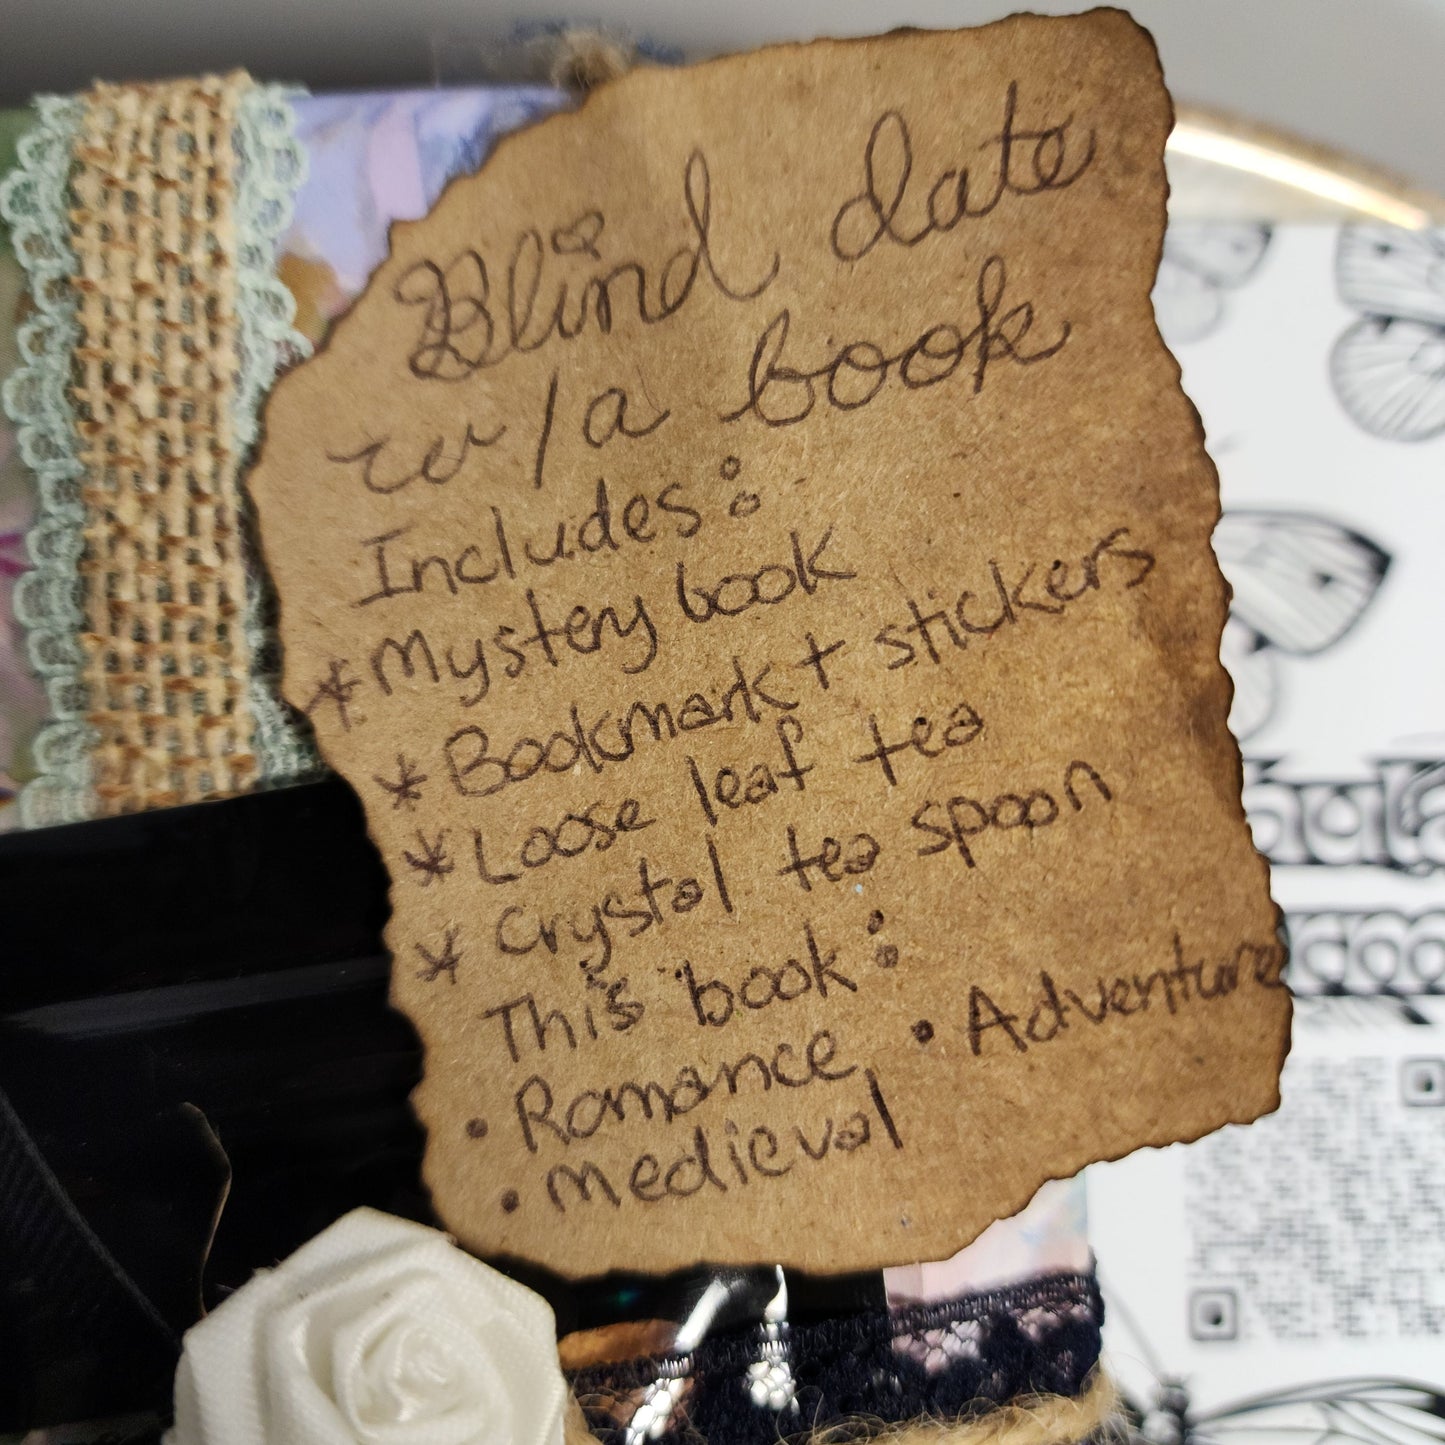 Blind date
w/a book
Includes:
* Mystery book
* Bookmark + stickers
* Loose leaf tea
* Crystal tea spoon
This book:
• Romance • Adventure
• Medieval